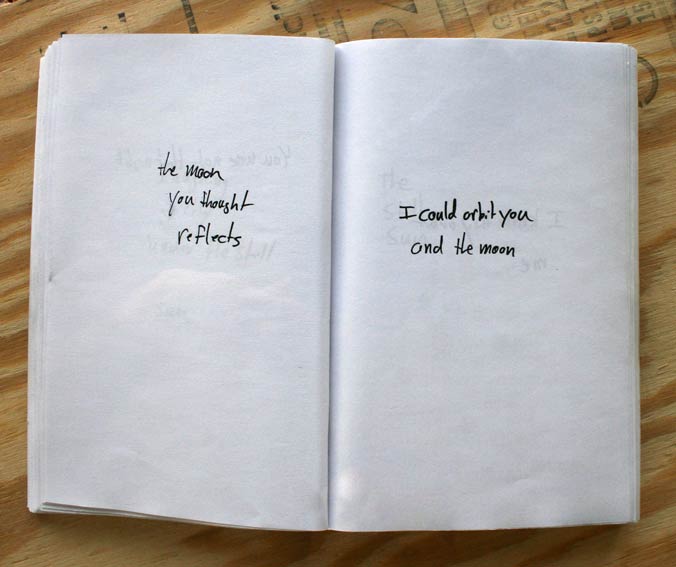 the moon
you thought
reflects
I could orbit you
and the moon